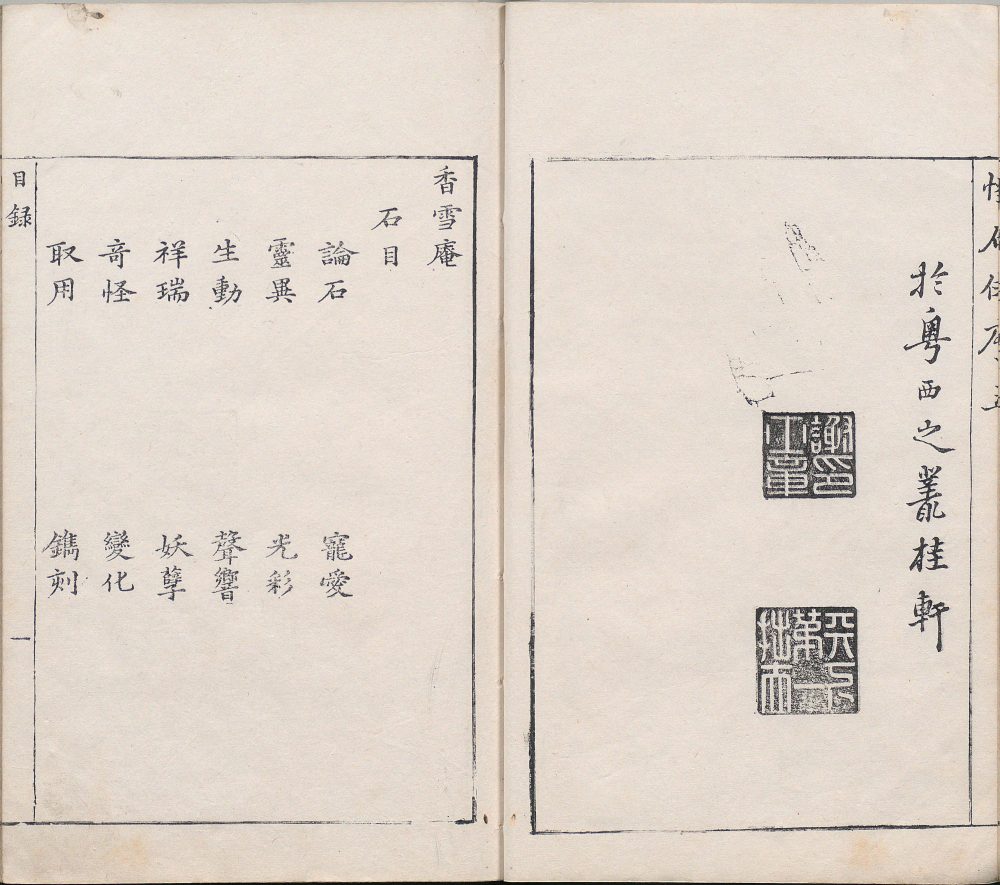 於粵西之叢桂軒
謝印
士章
香雪庵
石目
論石 寵愛
靈異 光彩
生動 聲響
祥瑞 妖孽
竒怪 變化
取用 鐫刻
目録 一